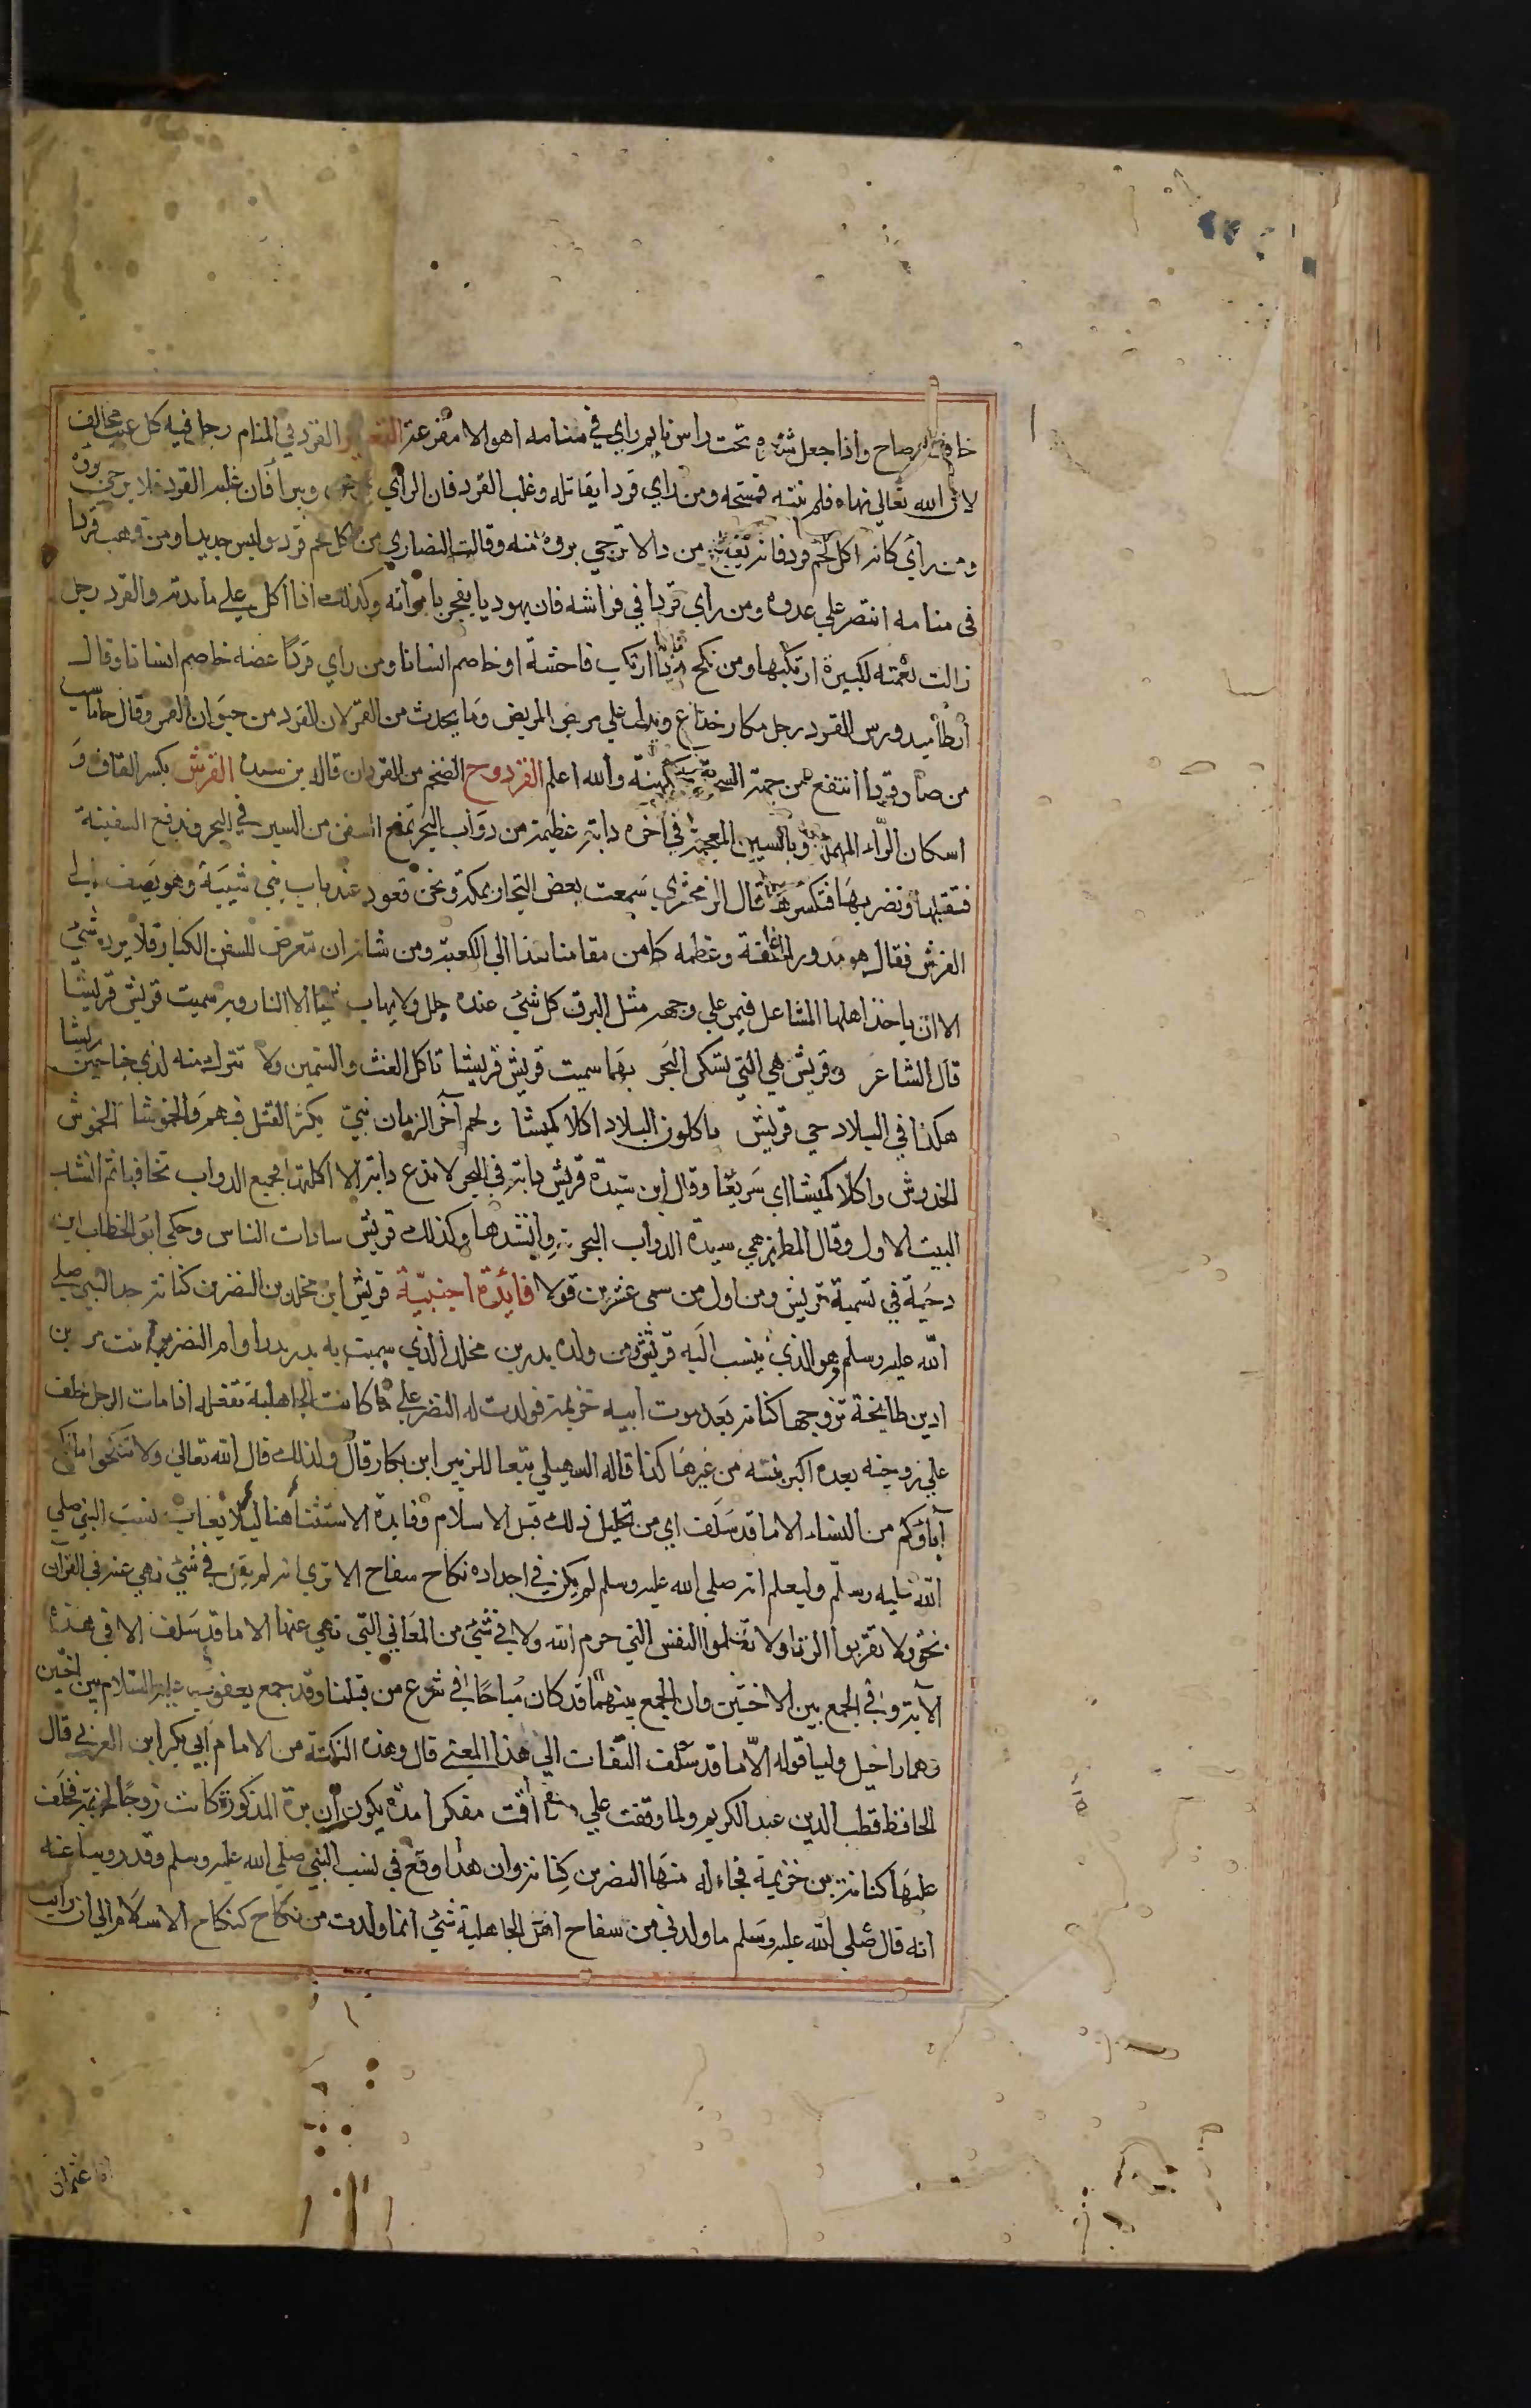 خاف وصاح واذا جعل شعره تحت راس نايم راي في منامه اهوالا مفزعة التعبير القرد في المنام رجل فيه كل عيب مخالف
لان الله تعالي نهاه فلم ينته فمسخه ومن راي قردا يقاتله وغلب القرد فان الراي يمرض ويبرا فان غلبه القرد فلا يرجي بروه
ومن راي كانه اكل لحم قرد فانه من دا لا يرجي بروه منه وقالت النصاري من اكل لحم قرد ولبس جديدا ومن وهب قردا
في منامه انتصر علي عدوه ومن راي قردا في فراشه فان يهوديا يفجر بامراته وكذلك اذا اكل علي مايدته والقرد رجل
زالت نعمته لكبيرة ارتكبها ومن نكح قردا ارتكب فاحشة او خاصم انسانا ومن راي قردا عضه خاصم انسانا وقال
ارطاميدورس القرد رجل مكار خداع ويدل علي مرض المريض وما يحدث من القمر لان القرد من حيوان القمر وقال جاماسب
من صاد قردا انتفع من جهة السحرة والله اعلم القردوح الضخم من القردان قاله بن سيده القرش بكسر القاف و
اسكان الراء المهملة وبالسين المعجمة في اخره دابة عظيمة من دواب البحر تمنع السفن من السير في البحر وتدفع السفينة
فتقلبها وتضربها فتكسرها قال الزمخشري سمعت بعض التجار بمكة ونحن قعود عند باب بني شيبة وهو يصف لي
القرش فقال هو مدور الخلقة وعظمه كما من مقامنا هذا الي الكعبة ومن شانه ان تتعرض للسفن الكبار فلا يرده شي
الا ان ياخذ اهلها المشاعل فيمر علي وجهه مثل البرق كل شي عنده جلل ولا يهاب شيا الا النار وبه سميت قريش قريشا
قال الشاعر وقريش هي التي تسكن البحر بها سميت قريش قريشا تاكل الغث والسمين ولا تترك منه لذي جناحين ريشا
هكذا في البلاد حي قريش ياكلون البلاد اكلا كميشا ولهم آخر الزمان نبي يكثر القتل فيهم والخموشا الخموش
الخدوش واكلا كميشا اي سريعا وقال ابن سيده قريش دابة في البحر لا تدع دابة الا اكلتها فجميع الدواب تخافها ثم انشد
البيت الاول وقال المطرزي هي سيدة الدواب البحرية واشدها وكذلك قريش سادات الناس وحكي ابو الخطاب ابن
دحية في تسمية قريش ومن اول من سمي عشرين قولا فائدة اجنبية قريش ابن مخلد بن النضر بن كنانة جد النبي صلي
الله عليه وسلم وهو الذي ينسب اليه قريش ومن ولده بدر بن مخلد الذي سميت به بدر بدرا وام النضر برة بنت مر بن
اد بن طابخة تزوجها كنانة بعد موت ابيه خزيمة فولدت له النضر علي ما كانت الجاهلية تفعله اذا مات الرجل خلف
علي زوجته بعده اكبر بنيه من غيرها كذا قاله السهيلي تبعا للزبير ابن بكار قال ولذلك قال الله تعالي ولا تنكحوا ما نكح
آباؤكم من النساء الا ما قد سلف اي من تحليل ذلك قبل الاسلام وفايدة الاستثناء هنا ليلا يعاب نسب النبي صلي
الله عليه وسلم وليعلم انه صلي الله عليه وسلم لم يكن في اجداده نكاح سفاح الا تري انه لم يقل في شي نهي عنه في القرآن
نحو ولا تقربوا الزنا ولا تقتلوا النفس التي حرم الله ولا في شي من المعاني التي نهي عنها الا ما قد سلف الا في هذه
الآية وفي الجمع بين الاختين وان الجمع بينهما قد كان مباحا في شرع من قبلنا وقد جمع يعقوب عليه السلام بين اختين
وهما راحيل وليا قوله الا ما قد سلف التفات الي هذا المعني قال وهذه النكتة من الامام ابي بكر ابن العربي قال
الحافظ قطب الدين عبد الكريم ولما وقفت علي اقت مفكرا مدة يكون ان برة المذكورة كانت زوجا لخزيمة فخلف
عليها كنانة بن خزيمة فجاءله منها النضر بن كنانة وان هذا وقع في نسب النبي صلي الله عليه وسلم وقد روينا عنه
انه قال صلي الله عليه وسلم ما ولدني من سفاح اهل الجاهلية شي انما ولدت من نكاح كنكاح الاسلام الي ان رايت
ابا عثمان